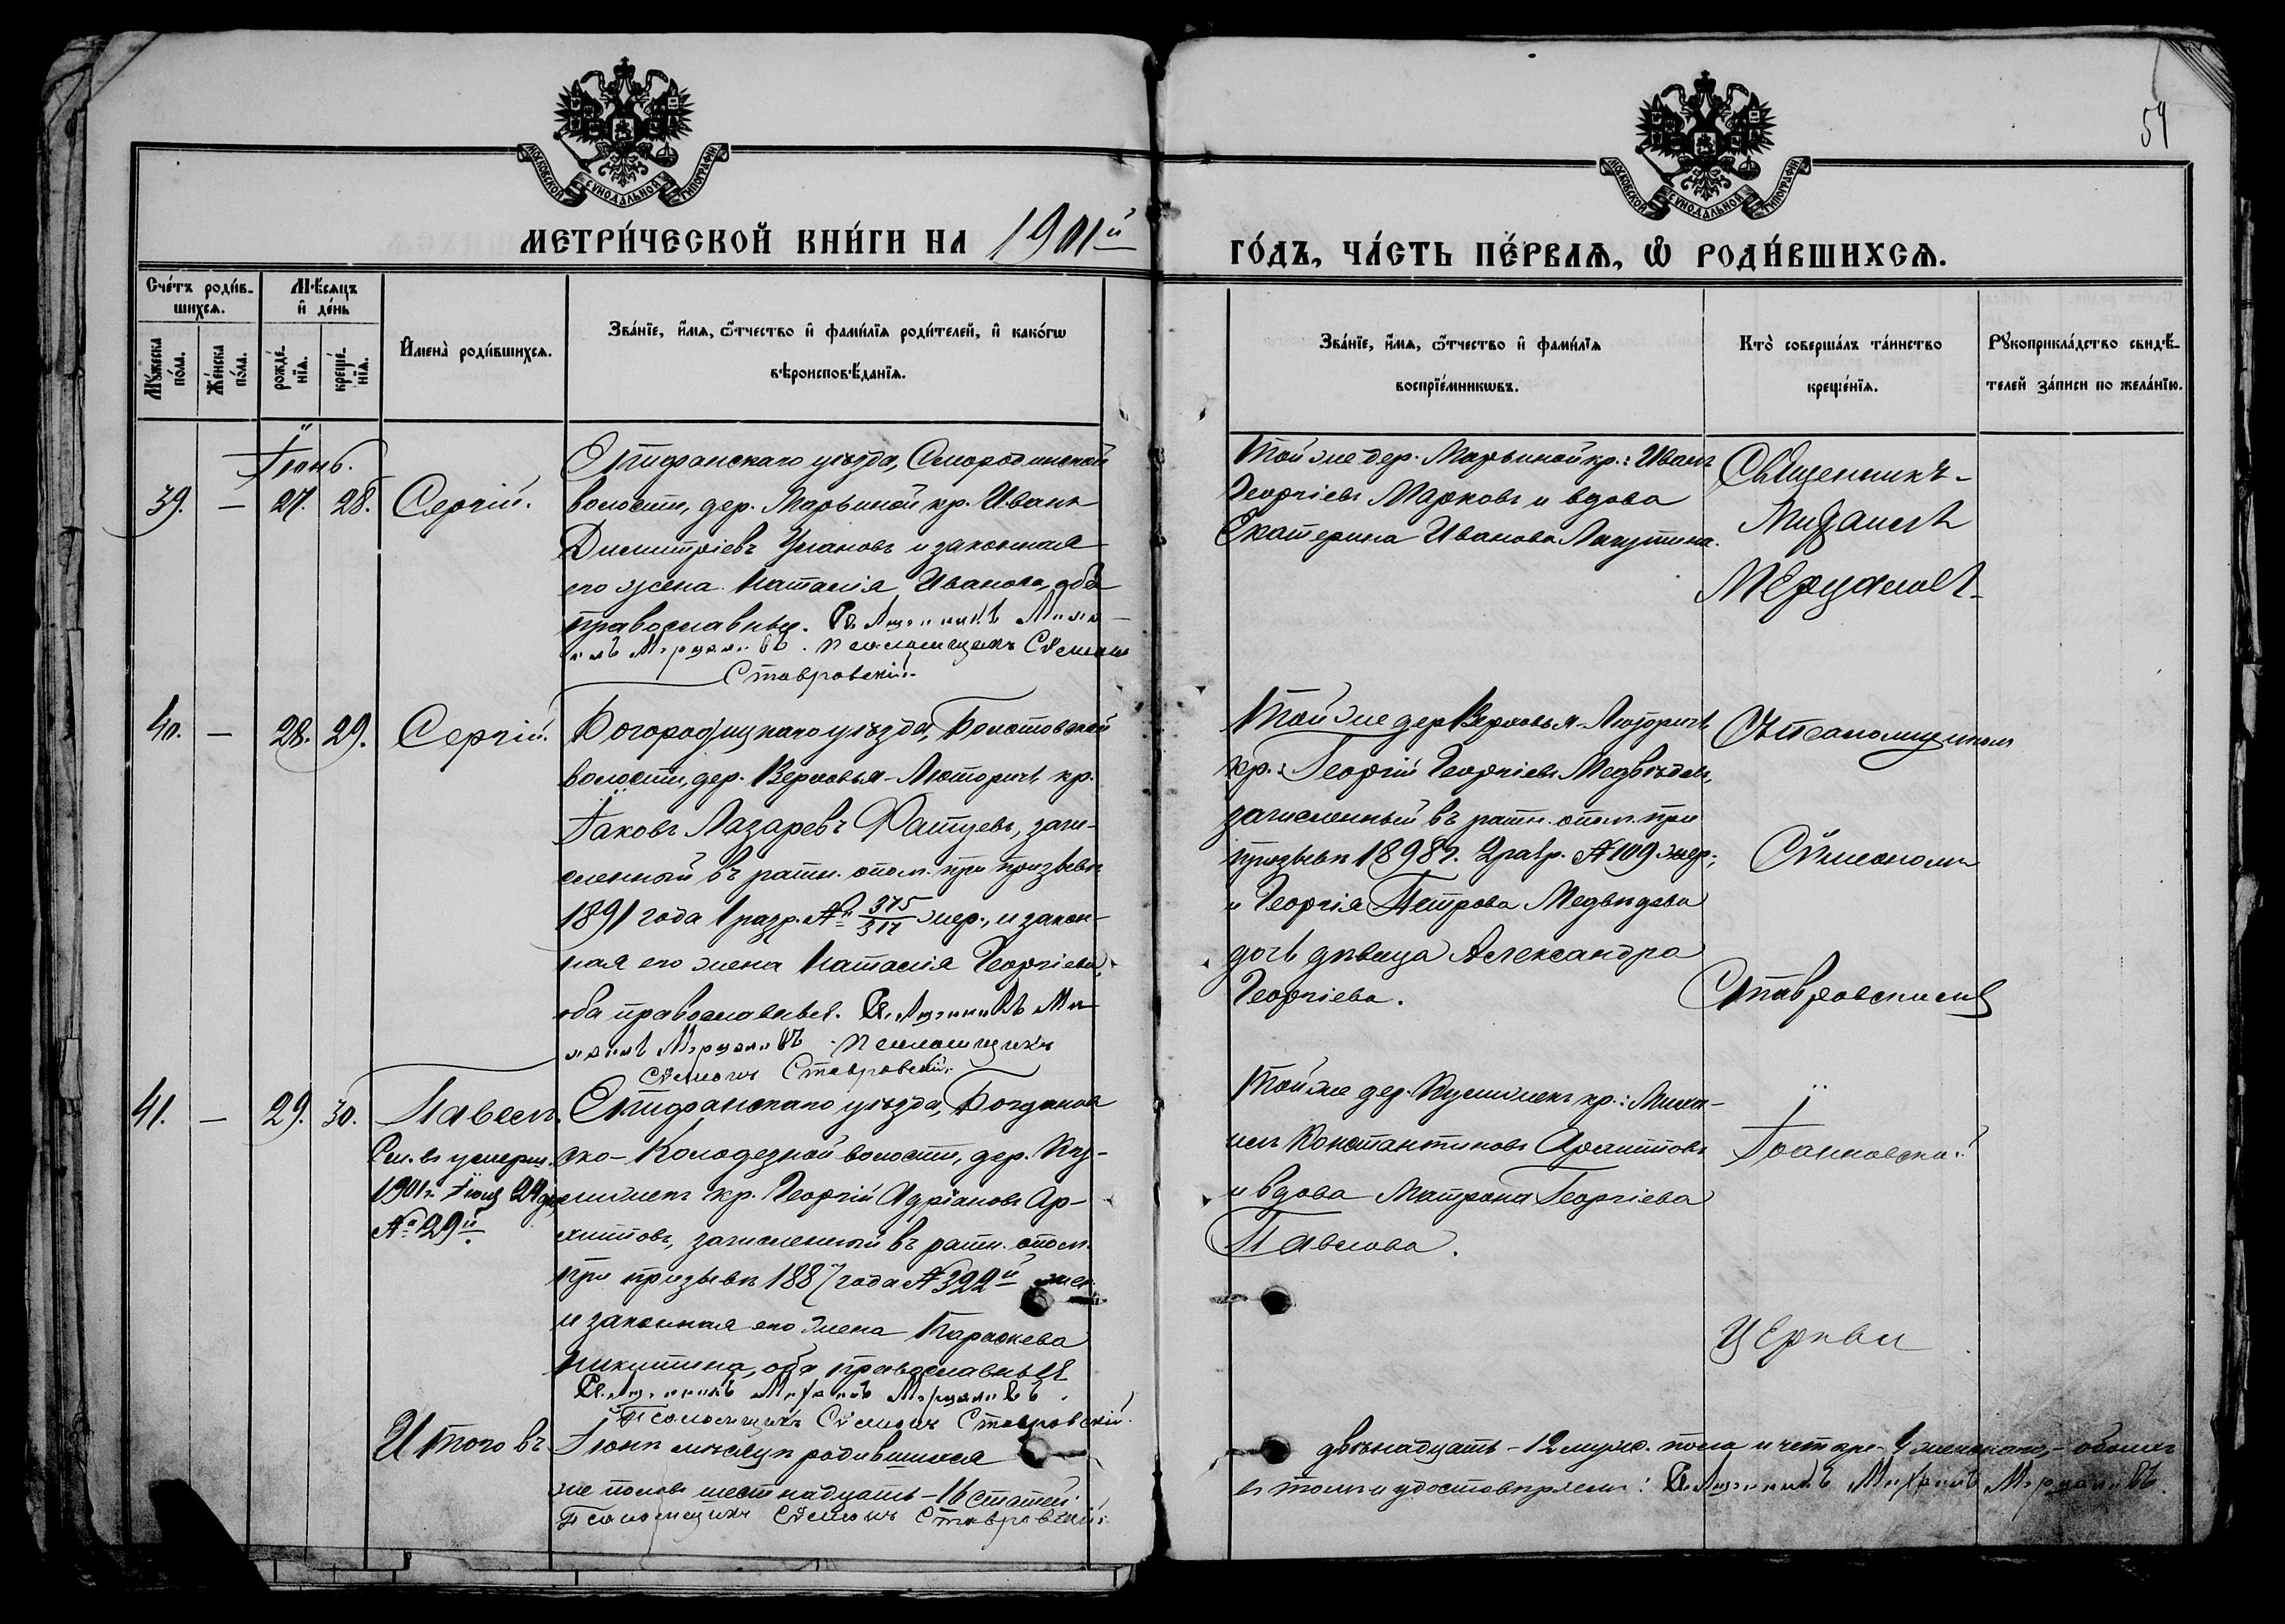 МОСКОВСКОЙ СѴНОДАЛЬНОЙ ТИПОГРАФІИ
МОСКОВСКОЙ СѴНОДАЛЬНОЙ ТИПОГРАФІИ
54
МЕТРИ́ЧЕСКОЙ КНИ́ГИ НА 1901й
ГО́ДЪ, ЧА́СТЬ ПЕ́РВАѦ, Ѽ РОДИ́ВШИХСѦ.
Сче́тъ роди́в-
шихсѧ.
Мꙋ́жеска по́ла.
Же́нска по́ла.
Мѣ́сѧцъ
и҆ де́нь
рожде́-
нїѧ.
креще́-
нїѧ.
И҆мена̀ роди́вшихсѧ.
Зва́нїе, и҆́мѧ, ѻ҆́тчество и҆ фами́лїѧ роди́телей, и҆ како́гѡ
вѣроисповѣ́данїѧ.
Зва́нїе, и҆́мѧ, ѻ҆́тчество и҆ фами́лїѧ
воспрїе́мникѡвъ.
Кто̀ соверша́лъ та́инство
креще́нїѧ.
Рꙋкоприкла́дство свидѣ́-
телей за́писи по жела́нїю.
Іюнь.
39. — 27. 28. Сергій.
Епифанскаго уѣзда, Смородинской
волости, дер. Марьиной кр. Иванъ
Димитріевъ Улановъ и законная
его жена Наталія Иванова, оба
православные. Священникъ Миха-
илъ Мерцаловъ. Псаломщикъ Сѵмеонъ
Ставровскій.
Той же дер. Марьиной кр.: Иванъ
Георгіевъ Марковъ и вдова
Екатерина Иванова Лагутина.
Священникъ
Михаилъ
Мерцаловъ
40. — 28. 29. Сергій.
Богородицкаго уѣзда, Болотовской
волости, дер. Верховья-Люторичъ кр.
Іаковъ Лазаревъ Фатуевъ, зачи-
сленный въ ратн. опол. при призывѣ
1891 года 1 разр. № 375/311 жер., и закон-
ная его жена Наталія Георгіева,
оба православные. Священникъ Ми-
хаилъ Мерцаловъ. Псаломщикъ
Сѵмеонъ Ставровскій.
Той же дер Верховья-Люторичъ
кр.: Георгій Георгіевъ Медвѣдевъ,
зачисленный въ ратн. опол. при
призывѣ 1898 г. 2 разр. № 109 жер.;
и Георгія Петрова Медвѣдева
дочь дѣвица Александра
Георгіева.
Съ псаломщикомъ
Сѵмеономъ
Ставровскимъ
41. — 29. 30. Павелъ.
См. въ умерш.
1901 г. Іюня
№ 29й
Епифанскаго уѣзда, Богданов-
ско-Колодезной волости, дер.
кр. Георгій Адріановъ Ар-
хиповъ, зачисленный въ ратн. опол.
при призывѣ 1887 года № 392й жер.
и законная его жена Параскева
Никитина, оба православные
Священникъ Михаилъ Мерцаловъ.
Псаломщикъ Сѵмеонъ Ставровскій.
Той же дер. кр.: Миха-
илъ Константиновъ Архиповъ
и вдова Матрона Георгіева
Павлова.
Іоанновской
церкви
Итого въ Іюнѣ мѣсяцѣ родившихся
же половъ шестнадцать - 16 статей.
Псаломщикъ Сѵмеонъ Ставровскій.
двѣнадцать - 12 мужс. пола и четыре - 4 женскаго, - обоихъ
въ томъ и удостовѣряемъ: Священникъ Михаилъ Мерцаловъ.